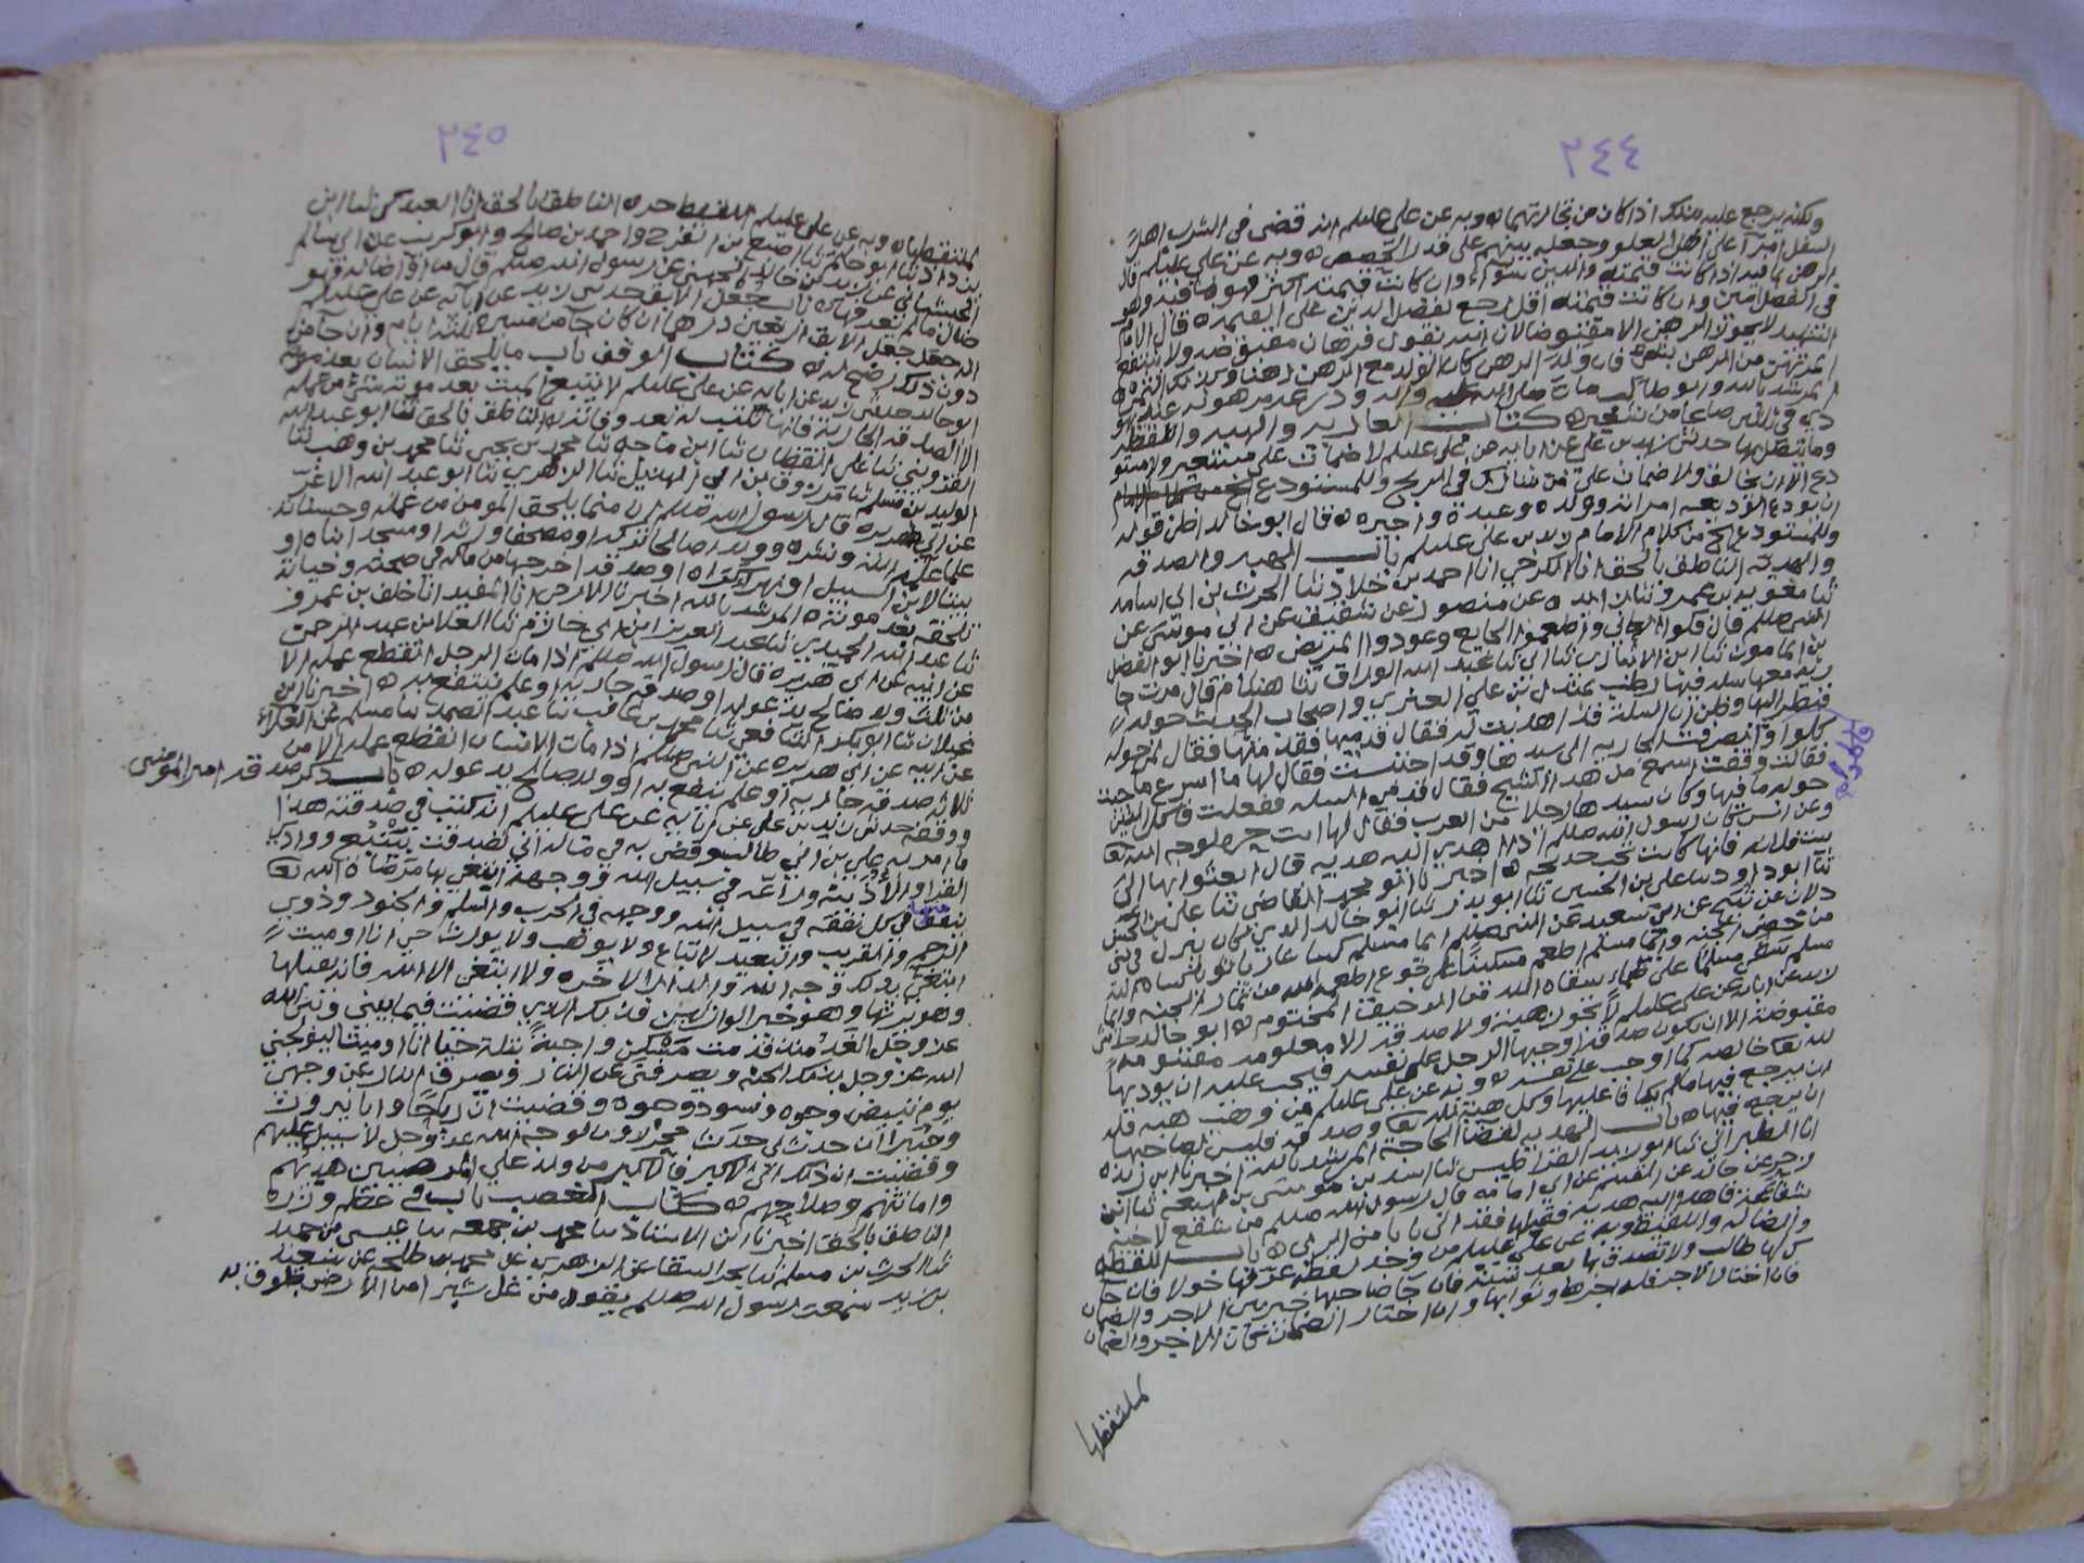 ٢٤٤
ولكنه يرجع عليه بذلك اذا كان من تجارتهما ه وبه عن علي عليلم انه قضى في الشرب اهل
السفل امرآ على اهل العلو وجعله بينهم على قدر الحصص ه وبه عن علي عليلم قال
الرهن بما فيه اذا كانت قيمته والدين سواء وان كانت قيمته اكثر فهو بما فيه وهو
في الفضل امين وان كانت قيمته اقل رجع بفضل الدين على القيمه ه قال الامام
الشهيد لا يجوز الرهن الا مقبوضا لان الله يقول فرهان مقبوضه ولا ينتفع
المرتهن من الرهن بشيء فان ولد الرهن كان الولد مع الرهن رهنا وكذلك الثمره
المرشد بالله وابو طالب مات صلى الله عليه واله ودرعه مرهونه عند
في صاعا من شعير ه كتاب العاريه والهبه واللقطه
وما يتصل بها حدثني زيد بن علي عن ابايه عن علي عليلم لا ضمان على مستعير ولا مستو
دع الا ان يخالف ولا ضمان على من شارك في الربح وللمستودع
ان يودع الوديعه امراته وولده وعبده واجيره ه قال ابو خالد اظن قوله
وللمستودع الخ من كلام الامام زيد بن علي عليلم باب الهبه والصدقه
والهديه الناطق بالحق انا الكرخي انا احمد بن خلاد ثنا الحرث بن ابي اسامه
ثنا معويه بن عمرو ثنا زايده عن منصور عن شقيق عن ابي موسى عن
النبي صللم قال فكوا العاني واطعموا الجايع وعودوا المريض ه اخبرنا ابو الفضل
بن المامون ثنا ابن الانباري ثنا ابي ثنا عبد الله الوراق ثنا هشام قال مرت جا
ريه معها سله فيها رطب بمندل بن علي العنزي واصحاب الحديث حوله
فنظر اليها وظن ان السله قد اهديت له فقال قدميها فقدمتها فقال لمن حوله
كلوا وانصرفت الجاريه الى سيدها وقد احتبست فقال لها ما اسرع ما جيت
فقالت وقفت اسمع من هذا الشيخ فقال قدمي السله ففعلت فاكل الذين
حوله ما فيها وكان سيدها رجلا من العرب فقال لها انت حره لوجه الله تعا
وعن انس كان رسول الله صللم اذا اهدي اليه هديه قال ابعثوا بها الى
بيت فلانه فانها كانت تحب خديجه ه اخبرنا ابو محمد القاضي ثنا علي بن الحسن
ثنا ابو داود علي بن الحسين ثنا ابو بدر ثنا ابو خالد الذي كان ينزل في بني
دلان عن نبيح عن ابي سعيد عن النبي صللم ايما مسلم كسا عاريا ثوبا كساه الله
من خضر الجنه وايما مسلم اطعم مسكينا على جوع اطعمه الله من ثمار الجنه وايما
مسلم سقى مسلما على ظماء سقاه الله من الرحيق المختوم ه ابو خالد حدثني
زيد عن ابايه عن علي عليلم لا تجوز هبة ولا صدقه الا معلومه مقسومه
مقبوضه الا ان يكون صدقه اوجبها الرجل على نفسه فيجب عليه ان يوديها
لله تعا خالصه كما اوجب على نفسه ه وبه عن علي عليلم من وهب هبه فله
ان يرجع فيها ما لم يكافا عليها وكل هبة لله تعا وصدقه فليس لصاحبها
ان يرجع فيها ه باب الهديه لقضاء الحاجه المرشد بالله اخبرنا ابن ريذه
انا الطبراني ثنا ابو زيد القراطيسي ثنا اسد بن موسى بن لهيعه ثنا ابن
زحر عن خالد عن القسم عن ابي امامه قال رسول الله صللم من شفع لاخيه
شفاعة فاهدا اليه هديه فقبلها فقد اتى بابا من الربى ه باب اللقطه
والضاله واللقيط وبه عن علي عليلم من وجد لقطه عرفها حولا فان جا
لها طالب والا تصدق بها بعد سنه فان جا صاحبها خير بين الاجر والضمان
فان اختار الاجر فله اجرها وثوابها وان اختار الضمان كان الاجر والضمان
لملتقطها
قال
٢٤٥
لملتقطها ه وبه عن علي عليلم اللقيط حره الناطق بالحق انا العبدكي ثنا ابن
يزداد ثنا ابو حاتم ثنا اصبغ بن الفرج واحمد بن صالح وابو كريب عن ابي سالم
الجيشاني عن زيد بن خالد الجهني عن رسول الله صللم قال من اوآ ضاله فهو
ضال ما لم يعرفها ه باب جعل الابق حدثني زيد عن ابايه عن علي عليلم
انه جعل جعل الابق اربعين درهما ان كان جا من مسيرة ثلاثة ايام وان جا من
دون ذلك رضخ له ه كتاب الوقف باب ما يلحق الانسان بعد موته
ابو خالد حدثني زيد عن ابايه عن علي عليلم لا يتبع الميت بعد موته شيء من عمله
الا الصدقه الجاريه فانها تكتب له بعد وفاته ه الناطق بالحق ثنا ابو عبد الله
القزويني ثنا علي القطان ثنا ابن ماجه ثنا محمد بن يحيى ثنا محمد بن وهب ثنا
الوليد بن مسلم ثنا مرزوق بن ابي الهذيل ثنا الزهري ثنا ابو عبد الله الاغر
عن ابي هريره قال رسول الله صللم ان مما يلحق المومن من عمله وحسناته
علما علمه الله ونشره وولدا صالحا تركه او مصحفا ورثه او مسجدا بناه او
بيتا لابن السبيل او نهرا كراه او صدقه اخرجها من ماله في صحته وحياته
تلحقه بعد موته ه المرشد بالله اخبرنا الارجي انا المفيد انا خلف بن عمرو
ثنا عبد الله الحميدي ثنا عبد العزيز ابن ابي حازم ثنا العلا بن عبد الرحمن
عن ابيه عن ابي هريره قال رسول الله صللم اذا مات الرجل انقطع عمله الا
من ثلث ولد صالح يدعو له او صدقه جاريه او علم ينتفع به ه اخبرنا ابن
غيلان ثنا ابو بكر الشافعي ثنا محمد بن غالب ثنا عبد الصمد ثنا مسلم عن العلاء
عن ابيه عن ابي هريره عن النبي صللم اذا مات الانسان انقطع عمله الا من
ثلاث صدقه جاريه او علم ينتفع به او ولد صالح يدعو له ه باب ذكر صدقه امير المومنين
ووقفه حدثني زيد بن علي عن ابايه عن علي عليلم انه كتب في صدقته هذا
ما امر به علي بن ابي طالب وقضى به في ماله اني تصدقت بينبع ووادي
القرا والاذينه وراعه في سبيل الله ووجهه ابتغي بها مرضاة الله تعا
ينفق منها في كل نفقه في سبيل الله ووجهه في الحرب والسلم والجنود وذوي
الرحم والقريب والبعيد لا تباع ولا توهب ولا تورث حي انا او ميت
ابتغي بذلك وجه الله والدار الاخره ولا ابتغي الا الله فانه يقبلها
وهو يرثها وهو خير الوارثين فذلك الذي قضيت فيما بيني وبين الله
عز وجل الغد منذ قدمت مسكن واجبة بتلة حيا انا او ميت ليولجني
الله عز وجل بذلك الجنه ويصرفني عن النار ويصرف النار عن وجهي
يوم تبيض وجوه وتسود وجوه وقضيت ان رباحا وابا نيروز
وجبيرا ان حدث لي حدث محررون لوجه الله عز وجل لا سبيل عليهم
وقضيت ان ذلك الى الاكبر فالاكبر من ولد علي المرضيين هديهم
وامانتهم وصلاحهم ه كتاب الغصب باب في عظم وزره
الناطق بالحق اخبرنا ابن الاستاذ ثنا محمد بن جمعه ثنا عيسى بن حميد
ثنا الحرث بن مسلم ثنا بحر السقا عن الزهري عن محمد بن طلحه عن سعيد
بن زيد سمعت رسول الله صللم يقول من غل شبرا من الارض طوق به